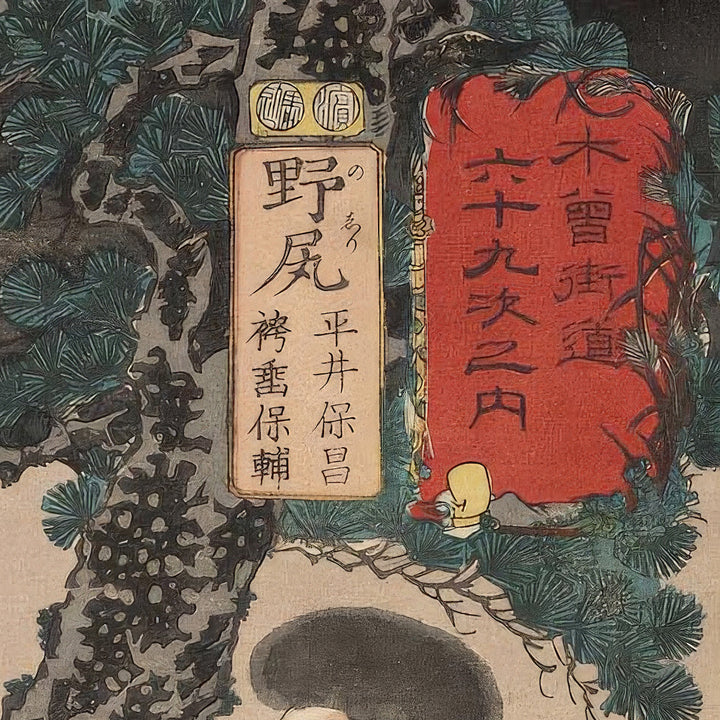 木曾街道
六十九次之内
濵
馬込
野尻
のじり
平井保昌
袴垂保輔